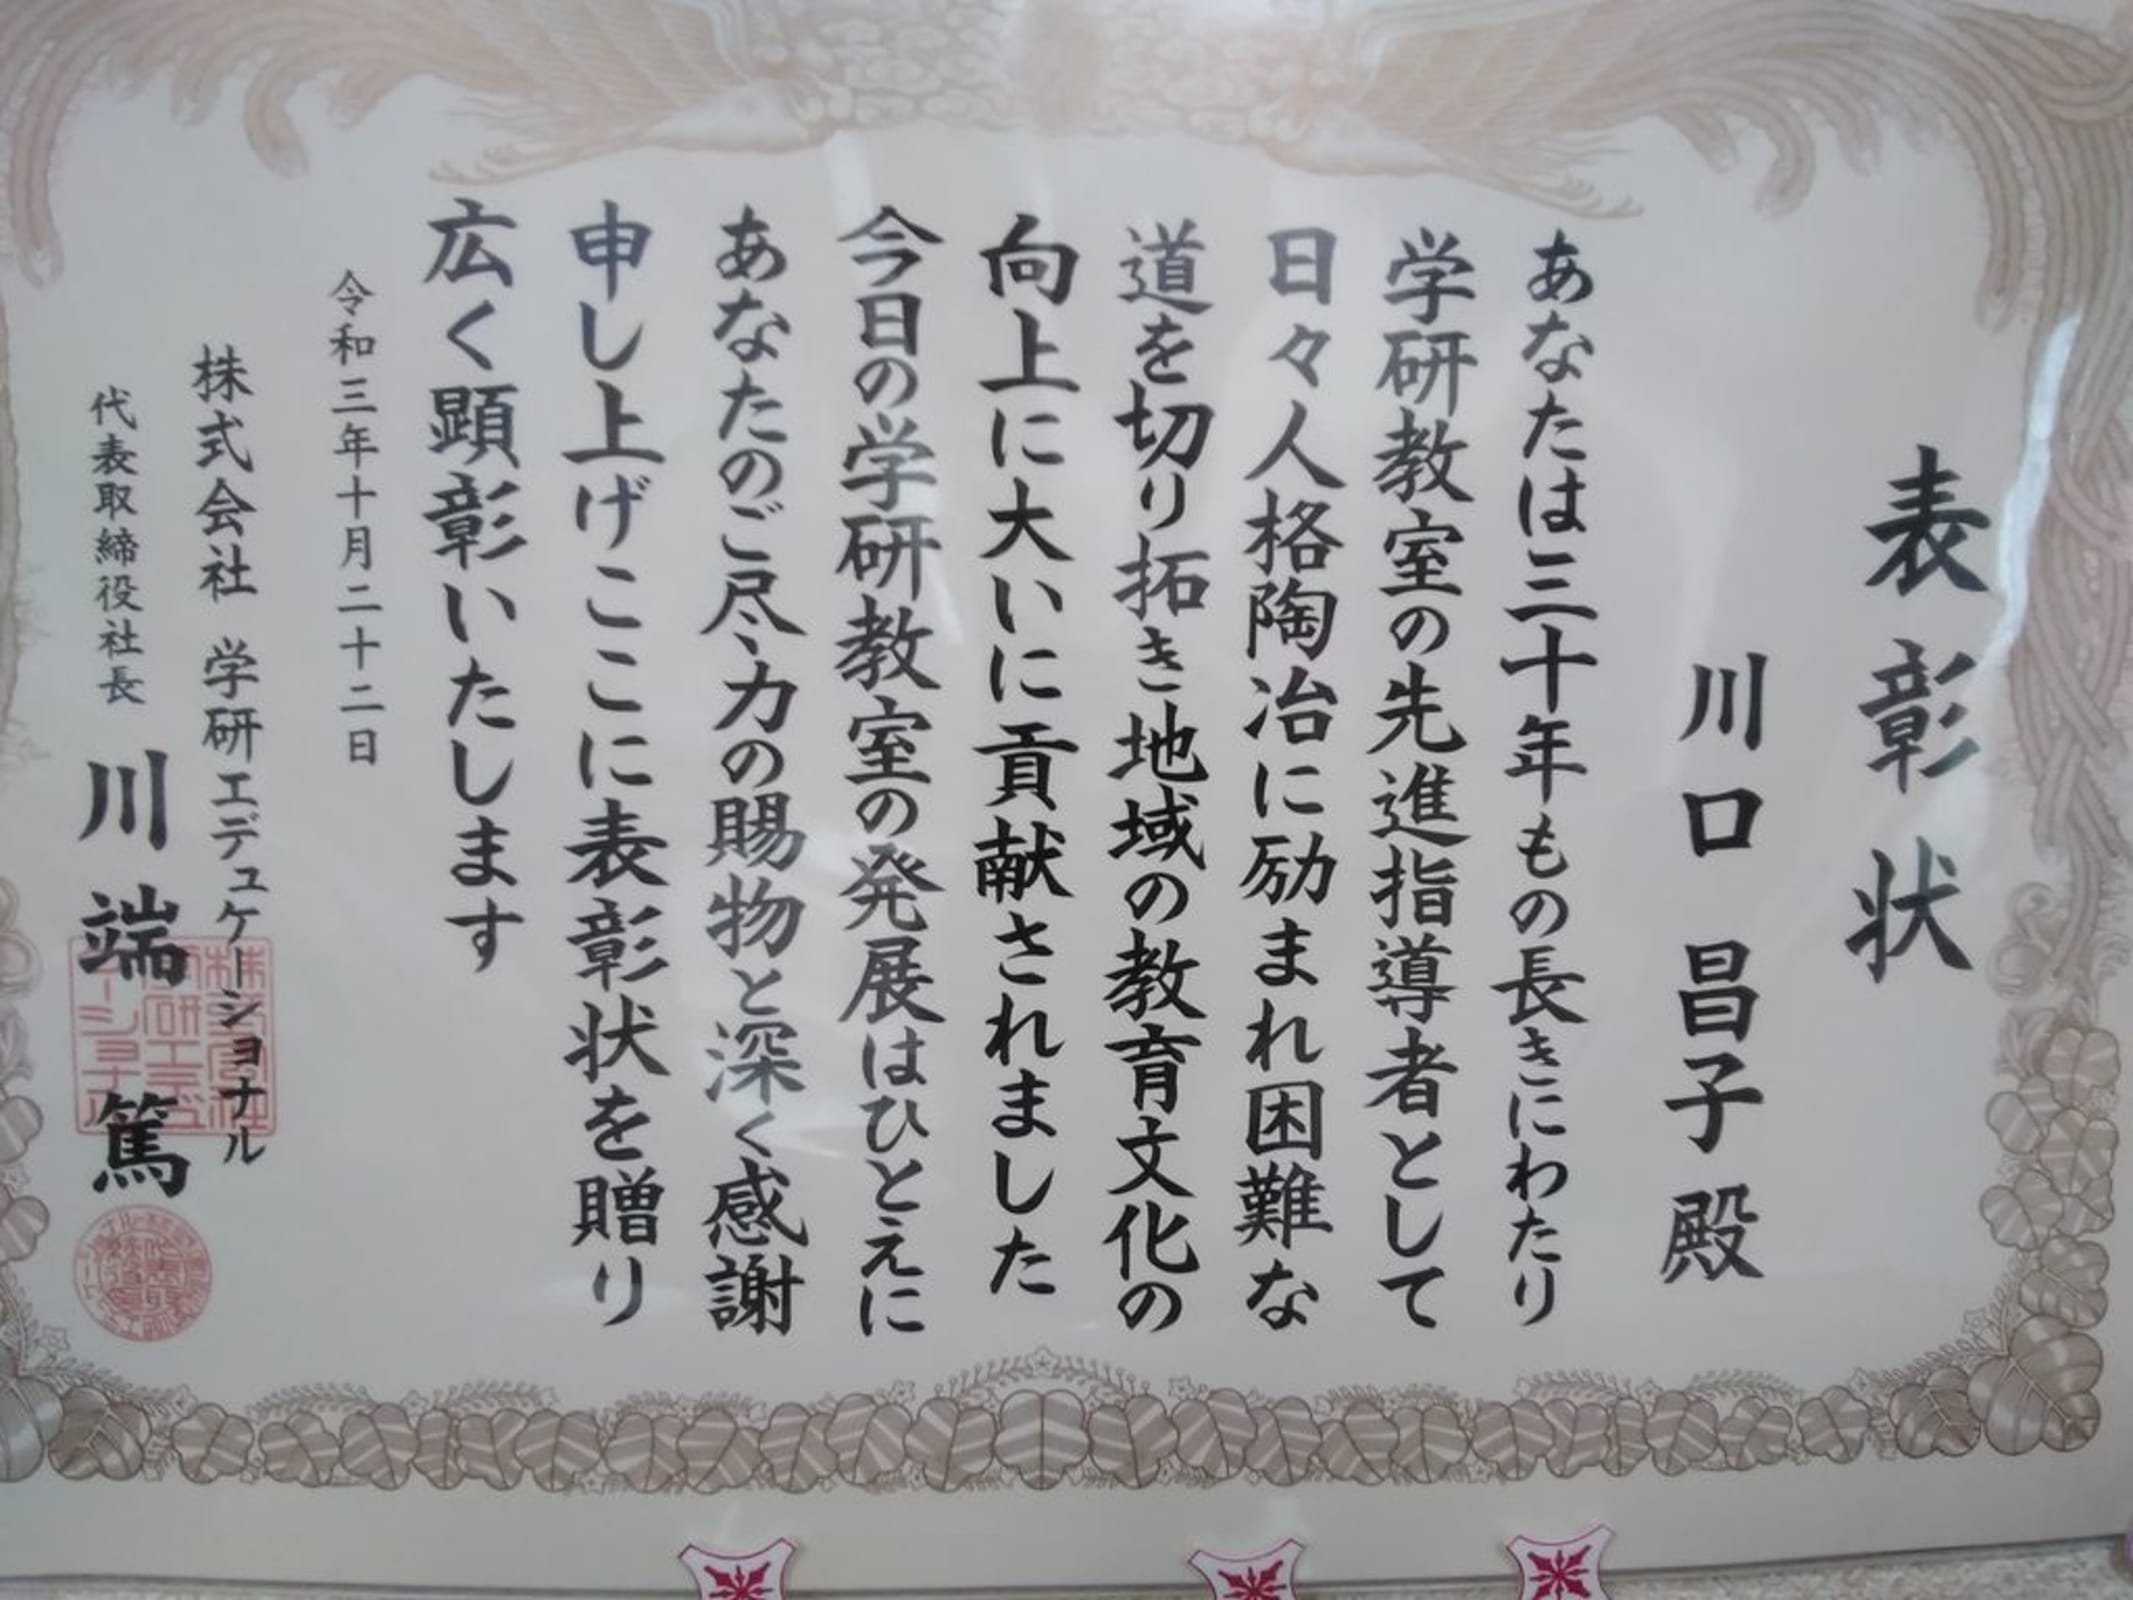 表彰状
川口昌子殿
あなたは三十年もの長きにわたり
学研教室の先進指導者として
日々人格陶冶に励まれ困難な
道を切り拓き地域の教育文化の
向上に大いに貢献されました
今日の学研教室の発展はひとえに
あなたのご尽力の賜物と深く感謝
申し上げここに表彰状を贈り
広く顕彰いたします
令和三年十月二十二日
株式会社 学研エデュケーショナル
代表取締役社長 川端篤